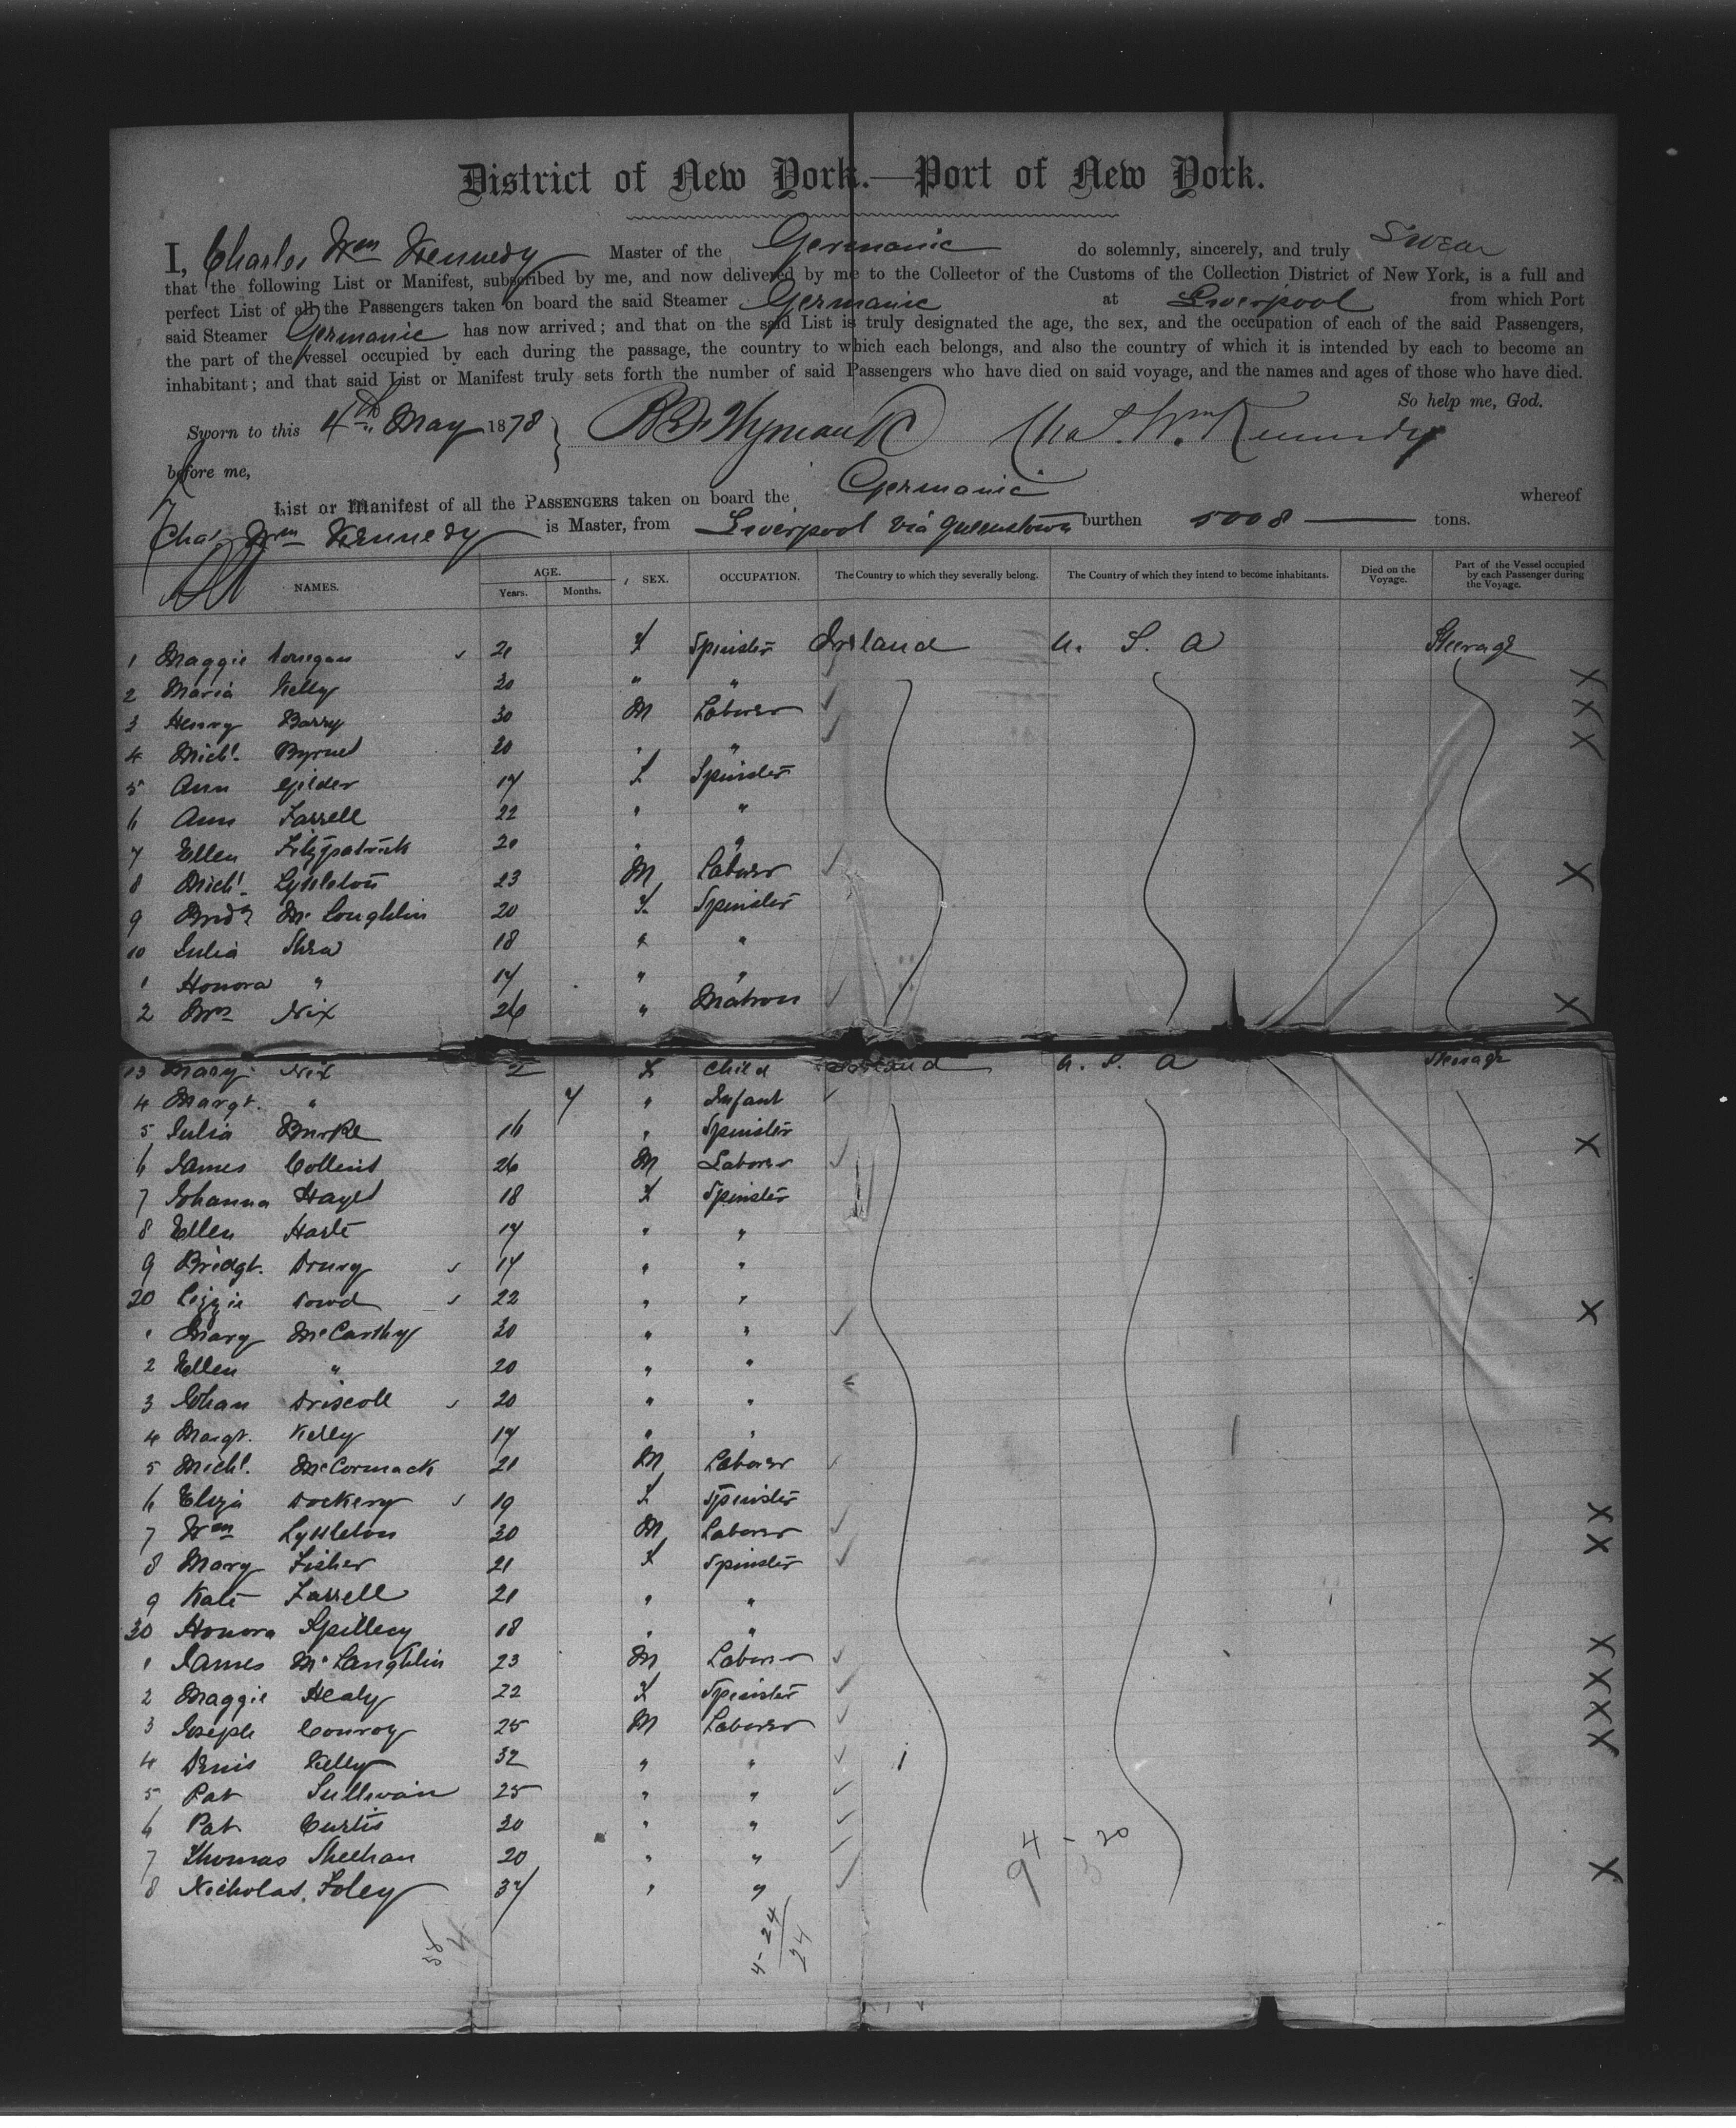 District of New York.—Port of New York.
I, Charles Wm Kennedy Master of the Germanic do solemnly, sincerely, and truly swear
that the following List or Manifest, subscribed by me, and now delivered by me to the Collector of the Customs of the Collection District of New York, is a full and
perfect List of all the Passengers taken on board the said Steamer Germanic at Liverpool from which Port
said Steamer Germanic has now arrived; and that on the said List is truly designated the age, the sex, and the occupation of each of the said Passengers,
the part of the vessel occupied by each during the passage, the country to which each belongs, and also the country of which it is intended by each to become an
inhabitant; and that said List or Manifest truly sets forth the number of said Passengers who have died on said voyage, and the names and ages of those who have died.
So help me, God.
Sworn to this 4th May 1878 Chas. Wm Kennedy
before me,
List or Manifest of all the PASSENGERS taken on board the Germanic whereof
Chas Wm Kennedy is Master, from Liverpool via Queenstown burthen 5008 tons.
NAMES. AGE. Years. Months. SEX. OCCUPATION. The Country to which they severally belong. The Country of which they intend to become inhabitants. Died on the Voyage. Part of the Vessel occupied by each Passenger during the Voyage.
1 Maggie Donegan 21 F Spinster Ireland U. S. A Steerage
2 Maria Kelly 20 " "
3 Henry Barry 30 M Laborer
4 Michl. Byrnes 20 " "
5 Ann Gilder 17 F Spinster
6 Ann Farrell 22 " "
7 Ellen Fitzpatrick 20 " "
8 Michl. Lyttleton 23 M Laborer
9 Bridt McLoughlin 20 F Spinster
10 Julia Shea 18 " "
1 Honora " 17 " "
2 Mrs Nix 26 " Matron
13 Mary Nix 2 F Child Ireland U. S. A Steerage
4 Margt. " 7 " Infant
5 Julia Burke 16 " Spinster
6 James Collins 26 M Laborer
7 Johanna Hayes 18 F Spinster
8 Ellen Harte 17 " "
9 Bridgt. Drury 17 " "
20 Lizzie Dowd 22 " "
1 Mary McCarthy 20 " "
2 Ellen " 20 " "
3 Johan Driscoll 20 " "
4 Margt. Kelly 17 " "
5 Michl. McCormack 21 M Laborer
6 Eliza Dockery 19 F Spinster
7 Wm Lyttleton 30 M Laborer
8 Mary Fisher 21 F Spinster
9 Kate Farrell 21 " "
30 Honora Spillecy 18 " "
1 James McLaughlin 23 M Laborer
2 Maggie Healy 22 F Spinster
3 Joseph Conroy 25 M Laborer
4 Denis Kelly 32 " "
5 Pat Sullivan 25 " "
6 Pat Curtis 20 " "
7 Thomas Sheehan 20 " "
8 Nicholas Foley 37 " "
4-24
24